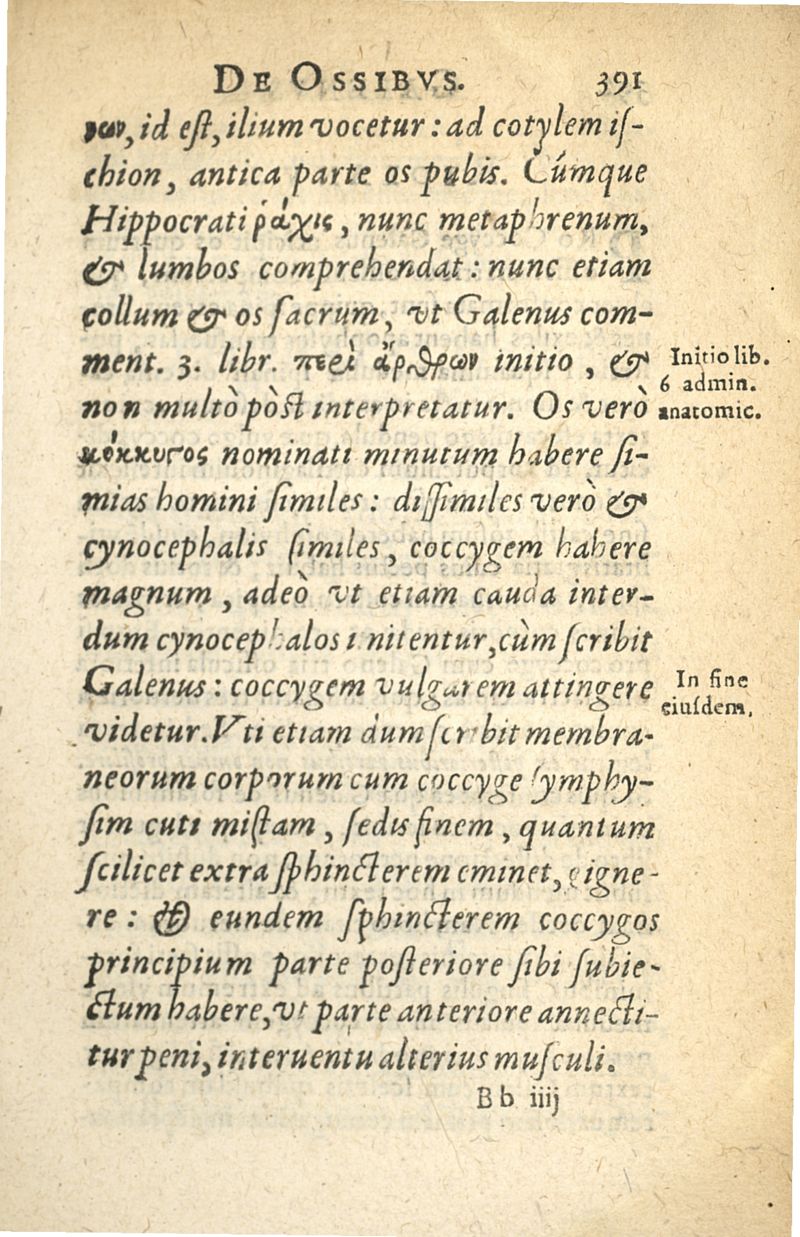 DE OSSIBVS. 391
νων, id eſt, ilium vocetur: ad cotylem iſ-
chion, antica parte os pubis. Cúmque
Hippocrati ῥάχις, nunc metaphrenum,
& lumbos comprehendat: nunc etiam
collum & os ſacrum, vt Galenus com-
ment. 3. libr. περὶ ἄρθρων initio, &
Initio lib.
6 admin.
anatomic.
non multò pòſt interpretatur. Os verò
κόκκυγος nominati minutum habere ſi-
mias homini ſimiles: diſſimiles verò &
cynocephalis ſimiles, coccygem habere
magnum, adeò vt etiam cauda inter-
dum cynocephalos imitentur, cùm ſcribit
Galenus: coccygem vulgarem attingere
In fine
eiuſdem.
videtur. Vti etiam dum ſcribit membra-
neorum corporum cum coccyge ſymphy-
ſim cuti miſtam, ſedis finem, quantum
ſcilicet extra ſphincterem eminet, gigne-
re: & eundem ſphincterem coccygos
principium parte poſteriore ſibi ſubie-
ctum habere, vt parte anteriore annecti-
tur peni, interuentu alterius muſculi.
Bb iiij